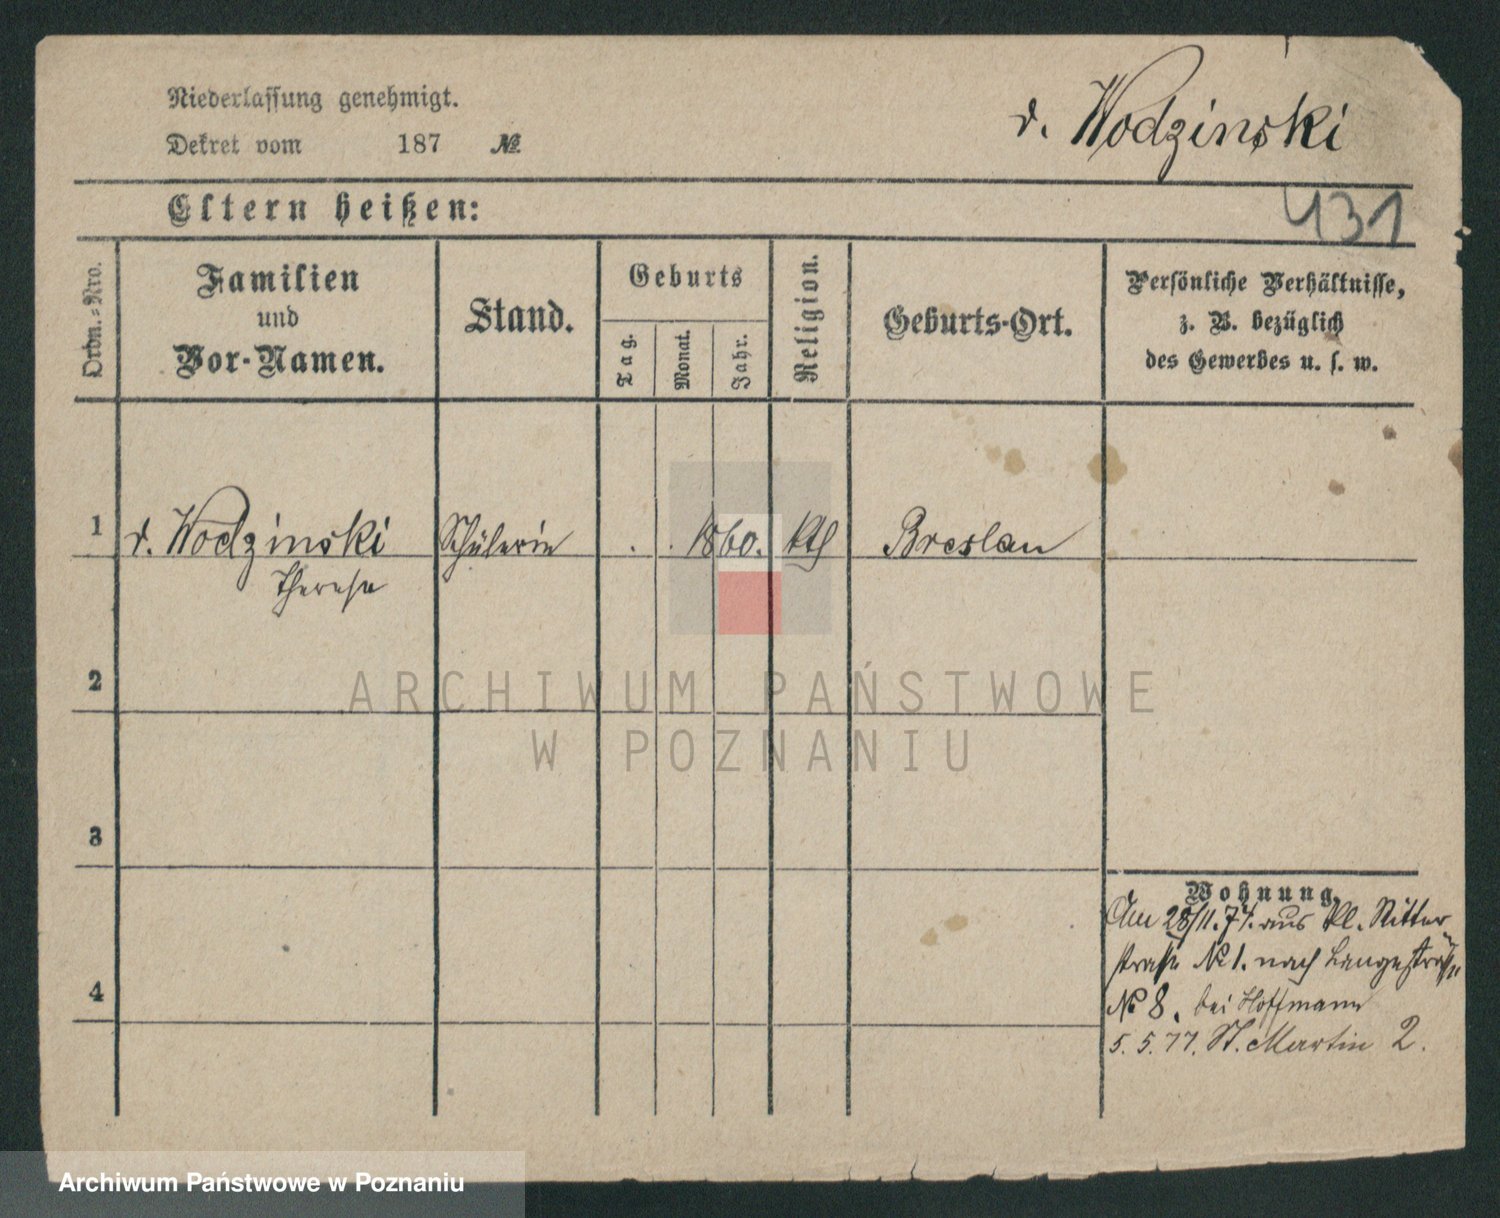 Niederlassung genehmigt.
Dekret vom 187 №
v. Wodzinski
Eltern heißen:
431
Ordn.-Nro.
Familien
und
Vor-Namen.
Stand.
Geburts
Tag.
Monat.
Jahr.
Religion.
Geburts-Ort.
Persönliche Verhältnisse,
z. B. bezüglich
des Gewerbes u. s. w.
1 v. Wodzinski Schülerin . . 1860. kth Breslau
Therese
2
ARCHIWUM PAŃSTWOWE
W POZNANIU
3
Wohnung.
Am 28/11.74. aus Kl. Ritter
straße № 1. nach Langestraße
4
№ 8. bei Hoffmann
5. 5. 77. St. Martin 2.
Archiwum Państwowe w Poznaniu